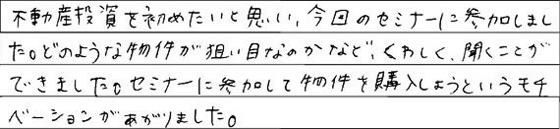 不動産投資を初めたいと思い、今回のセミナーに参加しまし
た。どのような物件が狙い目なのかなど、くわしく、聞くことが
できました。セミナーに参加して物件を購入しようというモチ
ベーションがあがりました。